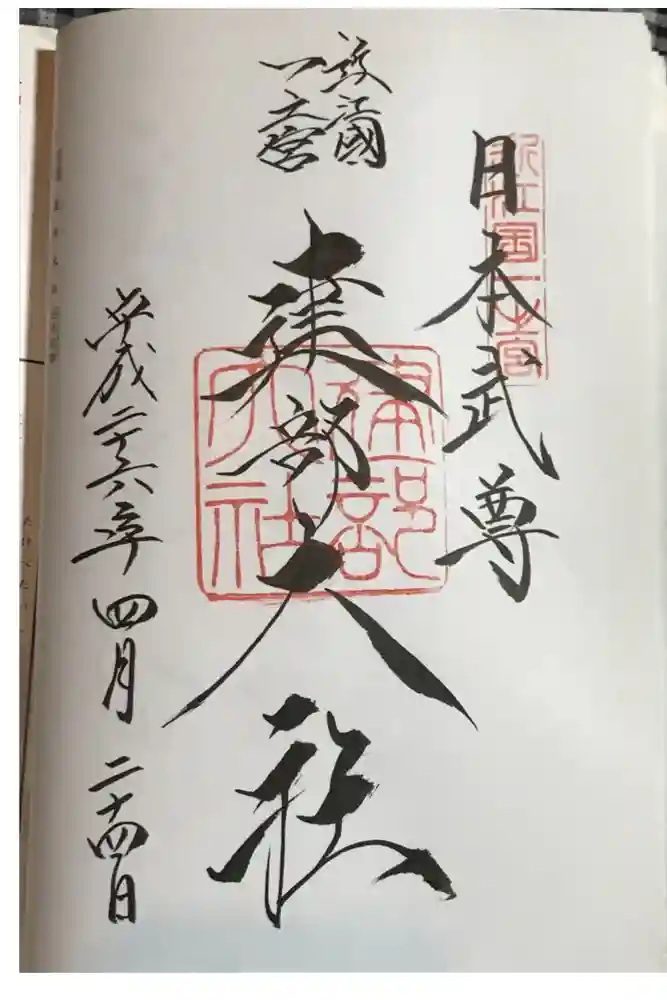 日本武尊
近江國
一之宮
建部大社
平成二十六年 四月 二十四日
近江国一之宮
建部
大社